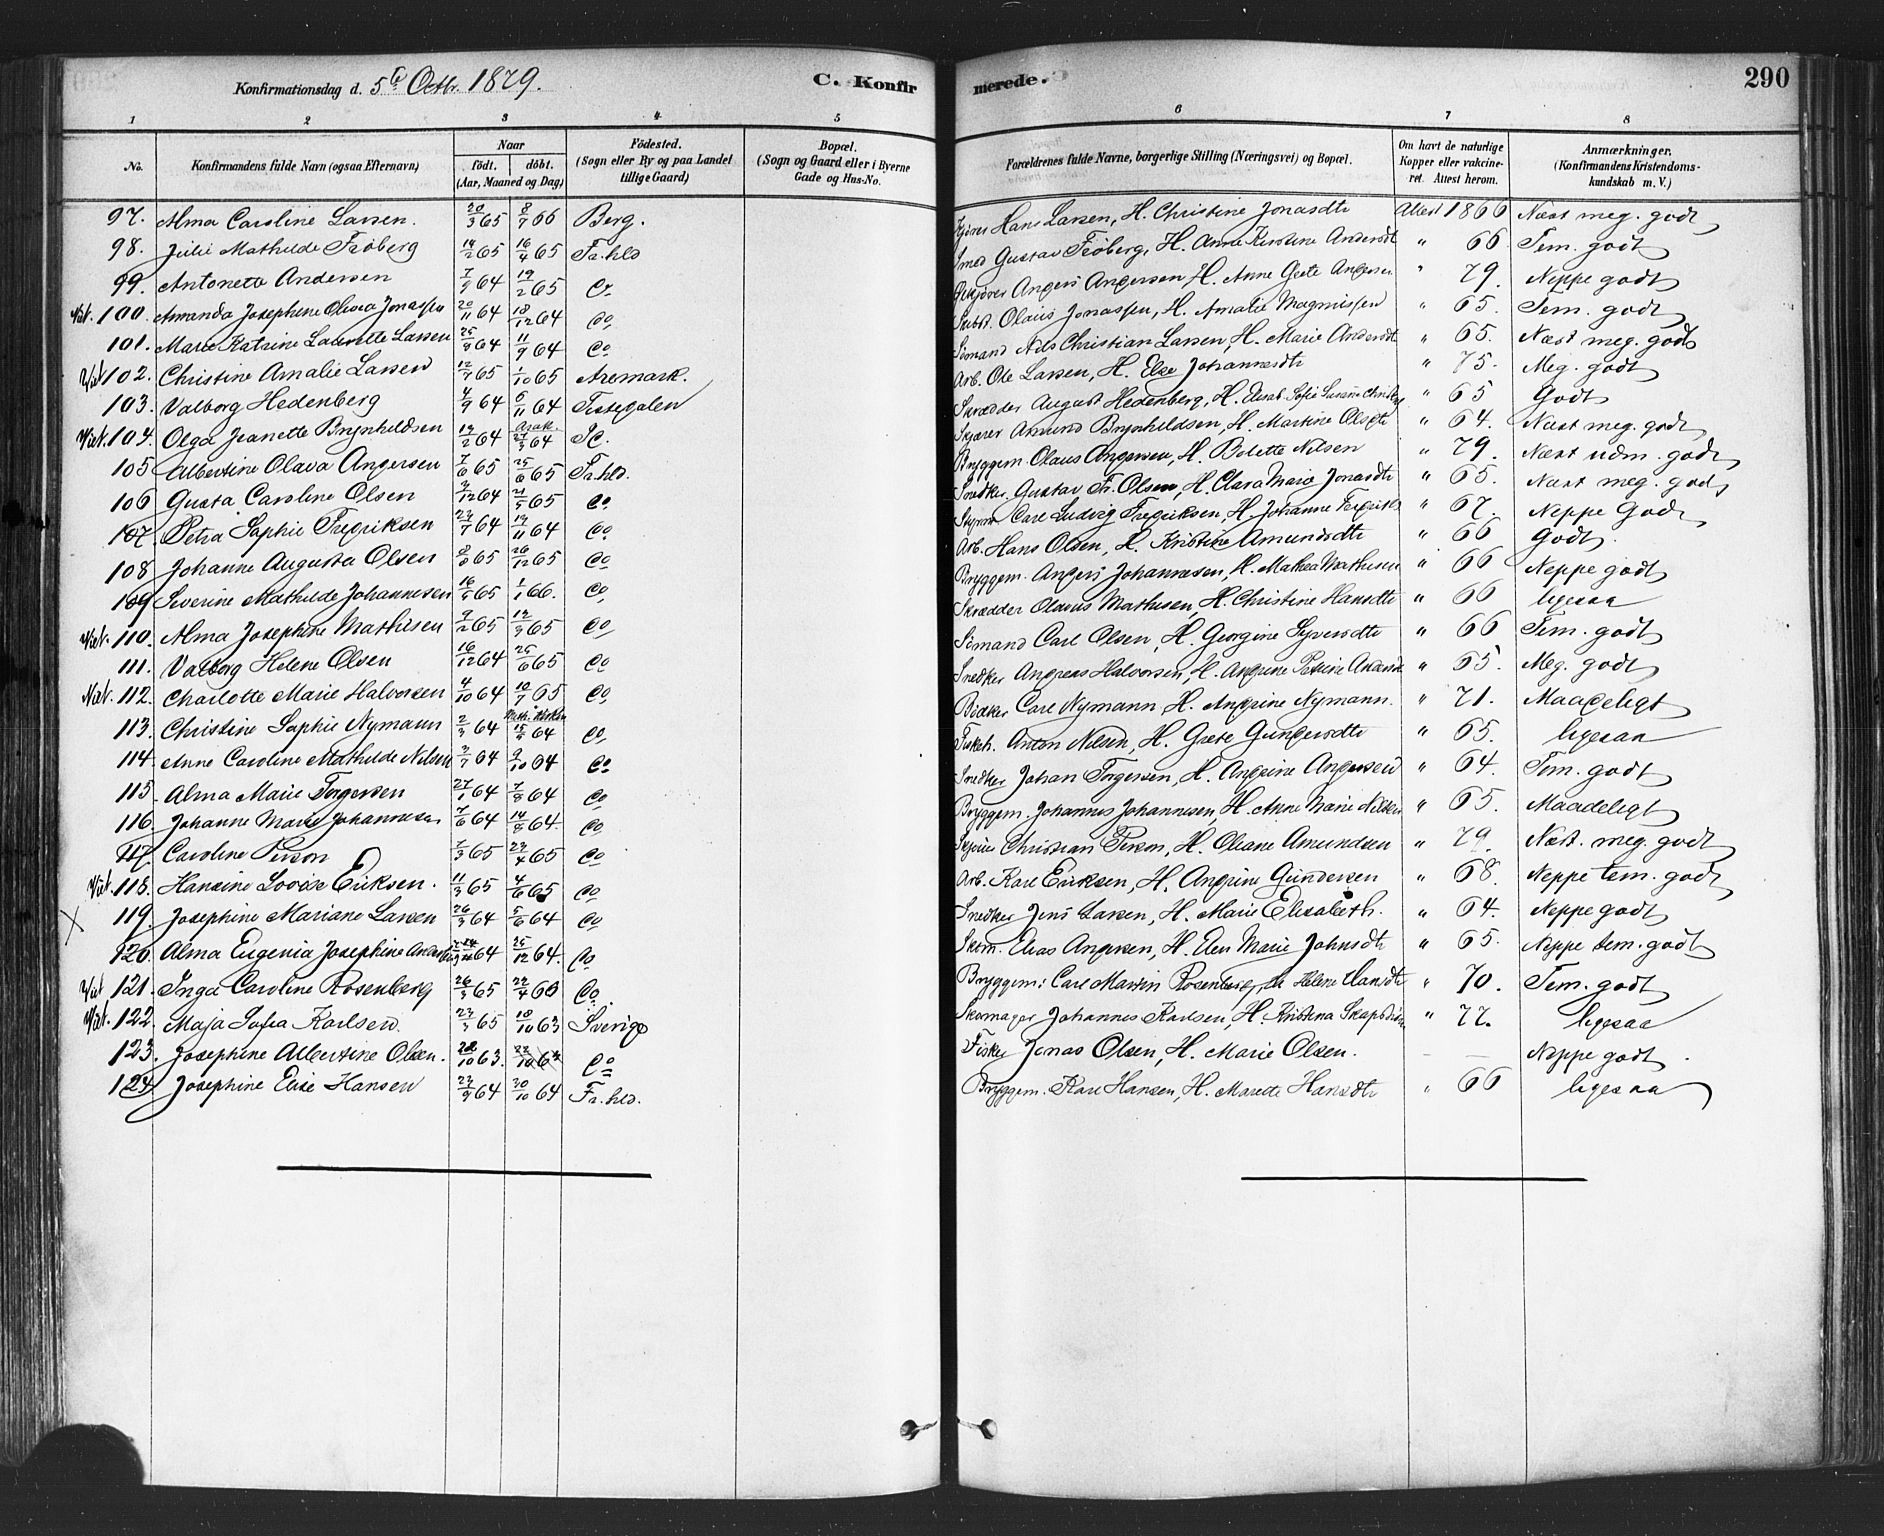 Konfirmationsdag d. 5te Octbr. 1879. C. Konfirmerede. 290
1 2 3 4 5 6 7 8
No. Konfirmandens fulde Navn (ogsaa Efternavn) Naar födt. döbt. (Aar, Maaned og Dag) Födested. (Sogn eller By og paa Landet tillige Gaard) Bopæl. (Sogn og Gaard eller i Byerne Gade og Hus-No. Forældrenes fulde Navne, borgerlige Stilling (Næringsvei) og Bopæl. Om havt de naturlige Kopper eller vakcineret. Attest herom. Anmærkninger. (Konfirmandens Kristendomskundskab m. V.)
97. Alma Caroline Larsen. 20/3 65 8/7 66 Berg. Hans Larsen, H. Christine Jonasdtr Attest 1866 Næst meg. godt
98. Julie Mathilde Fröberg 14/2 65 16/4 65 Fr.hld Smed Gustav Fröberg, H. Anne Kirstine Andersdt " 66 Tem. godt
99. Antonette Andersen 7/9 64 19/2 65 Co Anders Andersen, H. Anne Grete Andersen " 79. Neppe godt
100. Amanda Josephine Olivia Jonassen 20/11 64 18/12 64 Co Olaus Jonassen, H. Amalie Magnussen " 65. Tem. godt
101. Marie Katrine Laurette Larsen 25/8 64 11/9 64 Co Sömand Nils Christian Larsen, H. Marie Andersdt " 65. Næst meg. godt
102. Christine Amalie Larsen 12/7 65 1/10 65 Aremark. Arb. Ole Larsen, H. Else Johannesdtr " 75. Meg. godt
103. Valborg Hedenberg 4/9 64 6/11 64 Tistedalen Skrædder August Hedenberg, H. Elisab. Sofie " 65 Godt
104. Olga Jeanette Brynheldsen 19/2 64 27/3 64 Amund Brynheldsen, H. Martine Olsdt " 64. Næst meg. godt
105 Albertine Olava Andersen 7/6 65 25/6 65 Fr.hld. Bryggem. Olaus Andersen, H. Bolette Nilsen " 79. Næst udm. godt
106 Gusta Caroline Olsen 3/12 64 21/5 65 Co Snedker Gustav Fr. Olsen, H. Clara Marie Jonasdt " 65. Næst meg. godt
107. Petra Sophie Fredriksen 23/7 64 19/11 64 Co Carl Ludvig Fredriksen, H. Johanne " 67. Neppe Godt
108 Johanne Augusta Olsen 8/6 65 26/12 65 Co Arb. Hans Olsen, H. Kristine Amundsdtr " 66 Godt.
109 Severine Mathilde Johannesen 16/5 65 1/1 66. Co Bryggem. Anders Johannesen, H. Mathea Mathisen " 66 Neppe godt
110. Alma Josephine Mathisen 9/2 65 12/3 65 Co Skrædder Olaus Mathisen, H. Christine Hansdtr " 66 ligesaa
111. Valborg Helene Olsen 16/12 64 25/6 65 Co Sömand Carl Olsen, H. Georgine Syversdtr " 66 Tem. godt
112. Charlotte Marie Halvorsen 4/10 64 10/7 65 Co Snedker Andreas Halvorsen, H. Andrine Petrine " 65. Meg. godt
113. Christine Sophie Nymann 2/3 64 15/5 64 Co Carl Nymann, H. Andrine Nymann. " 71. Maadeligt
114. Anne Caroline Mathilde Nilsen 3/7 64 9/10 64 Co Fiskeh. Anton Nilsen, H. Grete Gundersdtr " 65. ligesaa
115. Alma Marie Torgersen 27/1 64 7/8 64 Co Snedker Johan Torgersen, H. Andrine Andersen " 64. Tem. godt
116. Johanne Marie Johannesen 7/6 64 14/8 64. Co Bryggem. Johannes Johannesen, H. Anne Marie Nilsen " 65. Maadeligt
117. Caroline Person 7/3 65 23/4 65 Co Christian Person, H. Oleane Amundsen " 79. Næst. meg. godt
118. Hansine Lovise Eriksen. 11/3 65 4/6 65 Co Arb. Karl Eriksen, H. Andrine Gundersen " 68. Neppe tem. godt
X 119. Josephine Mariane Larsen 26/3 64 5/6 64 Co Snedker Jens Larsen, H. Marie Elisabeth. " 64. Neppe godt
120. Alma Eugenia Josephine 64 25/12 64. Co Skom. Elias Andersen, H. Elen Marie Johnsdtr " 65. Neppe tem. godt
121. Inga Caroline Rosenberg 26/3 65 22/4 66 Co. Bryggem: Carl Martin Rosenberg, H. Helene " 70. Tem. godt
122. Maja Sofia Karlsen. 23/3 65 10/10 63 Sverige Skomager Johannes Karlsen, H. Kristena " 77. ligesaa
123. Josephine Albertine Olsen. 22/10 63. 22/10 Co Fisker Jonas Olsen, H. Marie Olsen. — — Neppe godt.
124. Josephine Elise Hansen 23/9 64 30/10 64 Fr.hld. Bryggem. Karl Hansen, H. Marette Hansdtr " 66 ligesaa